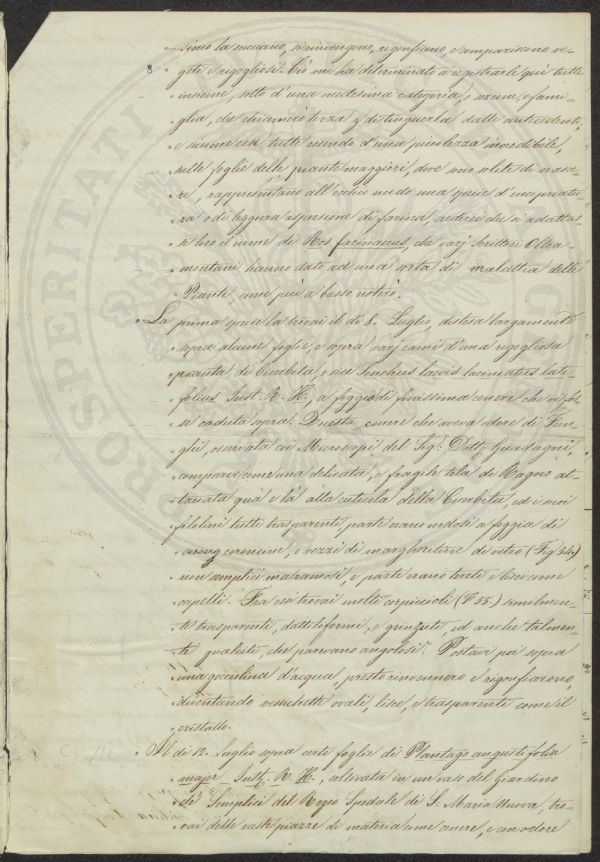 "simo la succiano, si rinvengono, rigonfiano, e compariscono ve-
8 "gete e rigogliose. Ciò mi ha determinato a registrarle quì tutte
"insieme, sotto d'una medesima categoria, o sezione, o fami-
"glia, che chiamerò terza per distinguerla dalle antecedenti,
"e siccome essa tutte essendo d'una piccolezza incredibile,
"sulle foglie delle piante maggiori, dove sono solite di nasce-
"re, rappresentano all'occhio nudo una specie d'incipriatu-
"ra o di leggiera aspersione di farina, crederei che si adattas-
"se loro il nome di Ros farinaceus, che varj Scrittori Oltra-
"montani hanno dato ad una sorta di malattia delle
"Piante, come più a basso noterò.
"La prima specie la trovai il dì 8. Luglio, distesa largamente
"sopra alcune foglie, e sopra varj rami d'una rigogliosa
"pianta di Cicerbita, o sia Sonchus laevis laciniatus lati-
"folius Inst. R. H., a foggia di finissima cenere che vi fos-
"se caduta sopra. Questa cenere che aveva odore di Fun-
"ghi, osservata coi Microscopj del Sig: Dott: Guadagni,
"comparve come una delicata, e fragile tela di Ragno at-
"taccata qua e là alla cuticola della Cicerbita, ed i suoi
"filolini tutti trasparenti, parte erano nodosi a foggia di
"coroncine, o vezzi di margheritine di vetro (Fig 54)
"non semplici ma ramosi, e parte erano tirati e lisci come
"capelli. Fra essi trovai molti corpiccioli (F 55.) similmen-
"te trasparenti, datteliformi, e grinzuti, ed anche talmen-
"te gualciti, che parevano angolosi. Postavi poi sopra
"una gocciolina d'acqua, presto rinvennero e rigonfiarono,
"diventando vescichette ovali, lisce, e trasparenti come il
"cristallo.
"Il dì 12. Luglio sopra certe foglie di Plantago angustifolia
"major Inst. R. H., coltivata in un vaso del Giardino
"de' Semplici del Regio Spedale di S. Maria Nuova, tro-
"vai delle vaste piazze di materia come cenere, e con odore
PROSPERITATI